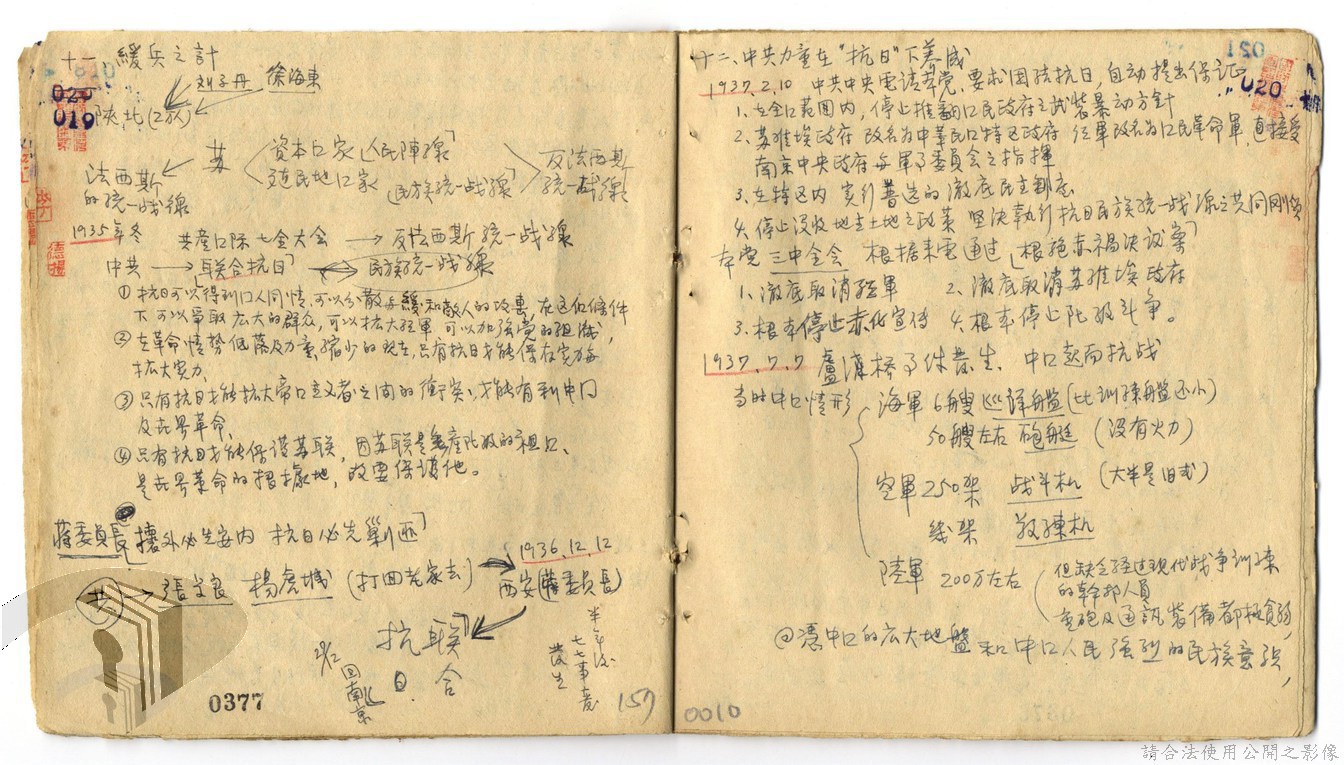 十一、緩兵之計
刘子丹 徐海東
020
019
陝北(2万人)
苏
資本口家「人民陣線」
殖民地口家「民族統一战線」
反法西斯
統一战線
法西斯
的統一战線
1935年冬 共產口际七全大会 → 反法西斯統一战線
中共 → 「联合抗日」 民族統一战線
① 抗日可以得到口人同情,可以分散与緩和敵人的攻惠,在这個條件
下可以爭取広大的群众,可以拡大紅軍,可以加強党的組織,
② 在革命情势低落及力量縮少的現在,只有抗日才能保存实力与
拡大实力,
③ 只有抗日才能拡大帝口主义者之间的衝突,才能有利中口
及世界革命,
④ 只有抗日才能保護苏联,因苏联是無產阶级的祖口、
是世界革命的根據地,故要保護他。
蔣委員長「攘外必先安内 抗日必先剿匪」
共 → 張学良 楊虎城 (打回老家去)
1936.12.12
西安(蔣委員長)
抗联
日 合
12/25 回南京
半年後
七七事变
發生
0377
157
十二、中共力量在"抗日"下养成
020
1937.2.10 中共中央電請本党,要求団結抗日,自动提出保証
1、在全口范围内,停止推翻口民政府之武装暴动方針
2、苏維埃政府 改名为中華民口特区政府 红軍改名为口民革命軍,直接受
南京中央政府与軍事委員会之指揮
3、在特区内 实行普选的澈底民主制度
4、停止没收地主土地之政策 坚决執行抗日民族統一战線之共同刚領
本党三中全会 根据来電通过「根絶赤禍决议案」
1、澈底取消紅軍 2、澈底取消苏維埃政府
3、根本停止赤化宣传 4、根本停止阶级斗争。
1937.7.7 盧溝桥事件發生 中口起而抗战
当时中口情形
海軍 6艘巡洋艦(比訓練艦还小)
50艘左右 砲艇 (没有火力)
空軍 250架 战斗机 (大半是旧式)
幾架 教練机
陸軍 200万左右
但缺乏经过現代战争訓練
的幹部人員
重砲及通訊装備都極貧弱,
◎憑中口的広大地盤和中口人民強烈的民族意識,
0010
請合法使用公開之影像